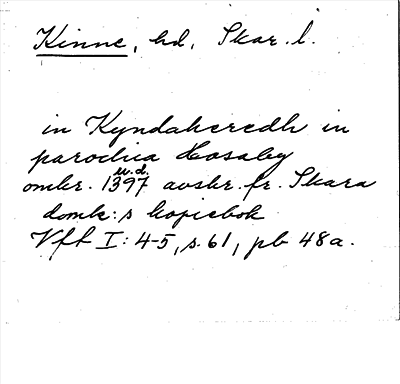 Kinne, hd, Skar. l.
in Kyndaheredh in
parochia Husaby
omkr. 1397 u.d. avskr. fr. Skara
domk:s kopiebok
Vft I: 4-5, s. 61, pb 48a.